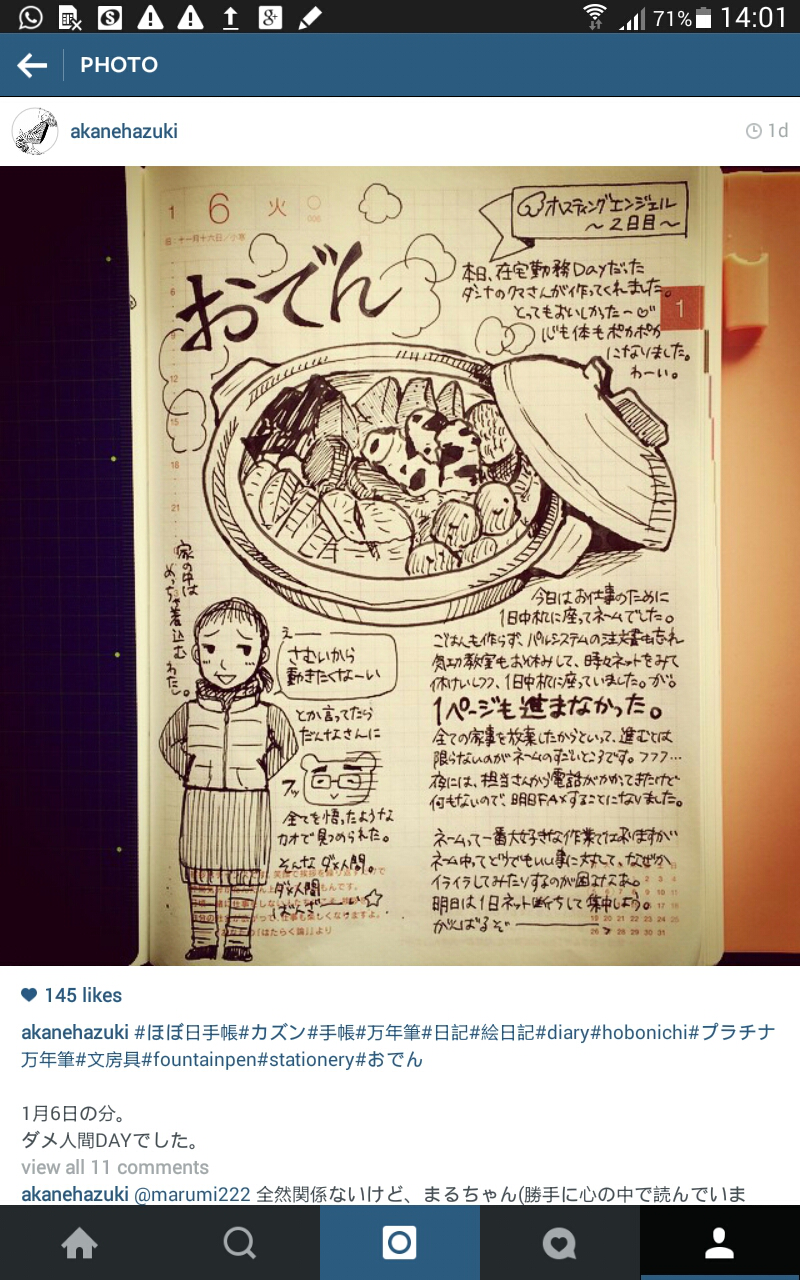 71% 14:01
PHOTO
akanehazuki
1d
1 6 火
006
旧・十一月十六日/小寒
ホスティングエンジェル
～2日目～
おでん
本日、在宅勤務Dayだった
ダンナのクマさんが作ってくれました。
とってもおいしかった～
心も体もポカポカ
になりました。
わーい。
1
6
9
12
15
18
21
家の中は
めっちゃ着込む
わたし。
え――
さむいから
動きたくなーい
とか言ってたら
だんなさんに
フッ
全てを悟ったような
カオで見つめられた。
そんな ダメ人間。
ダメ人間
ばんざーい☆
今日はお仕事のために
1日中机に座ってネームでした。
ごはんも作らず、パルシステムの注文書も忘れ
気功教室もお休みして、時々ネットをみて
休けいしつつ、1日中机に座っていました。が。
1ページも進まなかった。
全ての家事を放棄したからといって、進むとは
限らないのがネームのすごいところです。フフフ…
夜には、担当さんから電話がかかってきたけど
何もないので、明日FAXすることになりました。
ネームって一番大好きな作業ではありますが
ネーム中ってどうでもいい事に対して、なぜか
イライラしてみたりするのが困るなあ。
明日は1日ネット断ちして集中しよう。
がんばるぞ
『はたらく論』より
145 likes
akanehazuki #ほぼ日手帳#カズン#手帳#万年筆#日記#絵日記#diary#hobonichi#プラチナ
万年筆#文房具#fountainpen#stationery#おでん
1月6日の分。
ダメ人間DAYでした。
view all 11 comments
akanehazuki @marumi222 全然関係ないけど、まるちゃん(勝手に心の中で読んでいま